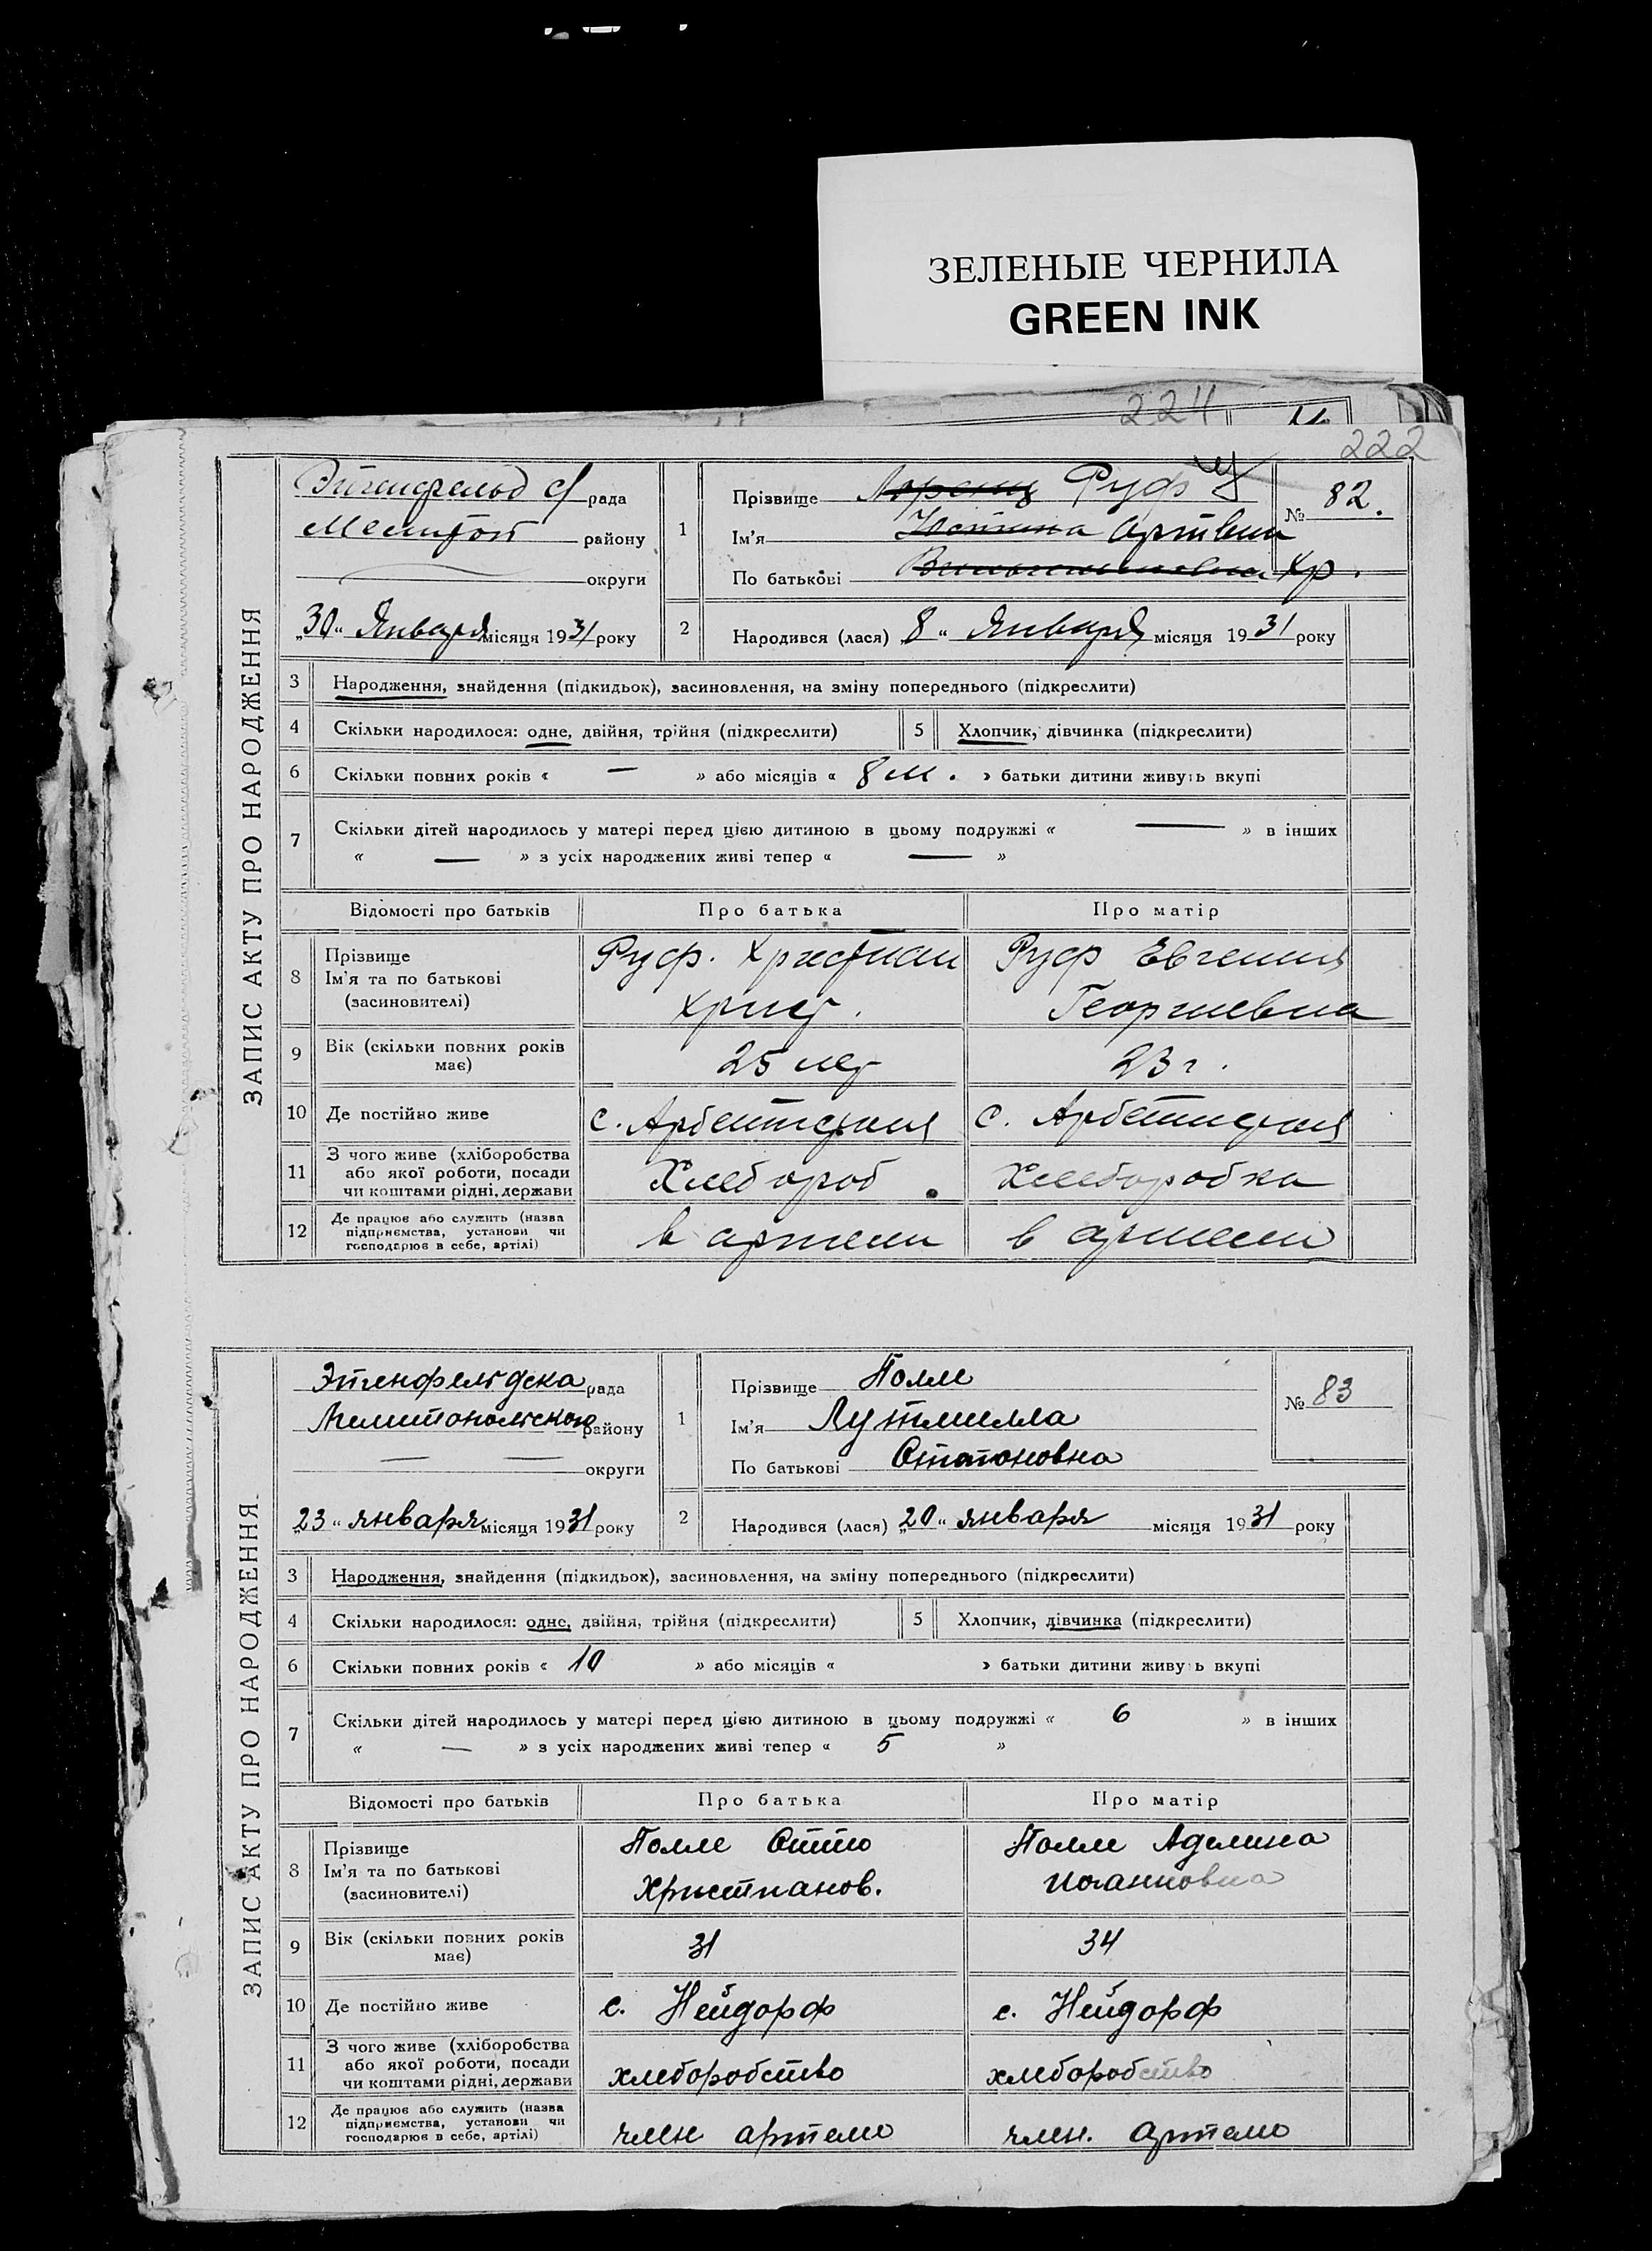 ЗЕЛЕНЫЕ ЧЕРНИЛА
GREEN INK
224
222
ЗАПИС АКТУ ПРО НАРОДЖЕННЯ
рада
Мелитоп району
округи
„30“ Января місяця 1931 року
1
Прізвище Лоренц Руф
№ 82.
Ім’я Юстина Артвин
По батькові Хр.
2
Народився (лася) 8 “ Января місяця 1931 року
3 Народження, знайдення (підкидьок), засиновлення, на зміну попереднього (підкреслити)
4 Скільки народилося: одне, двійня, трійня (підкреслити) 5 Хлопчик, дівчинка (підкреслити)
6 Скільки повних років « — » або місяців « 8 м. » батьки дитини живуть вкупі
7 Скільки дітей народилось у матері перед цією дитиною в цьому подружжі « — » в інших
« — » з усіх народжених живі тепер « — »
Відомості про батьків Про батька Про матір
8 Прізвище
Ім’я та по батькові
(засиновителі)
Руф. Христиан
Христ.
Руф Евгения
Георгиевна
9 Вік (скільки повних років має) 25 лет 23 г.
10 Де постійно живе с. с.
11 З чого живе (хліборобства
або якої роботи, посади
чи коштами рідні, держави
Хлебороб Хлеборобка
12 Де працює або служить (назва
підприємства, установи чи
господарює в себе, артілі)
в артели в артели
ЗАПИС АКТУ ПРО НАРОДЖЕННЯ
Этигенфельдска рада
Мелитопольского району
— — округи
„23“ января місяця 1931 року
1
Прізвище Полле
№ 83
Ім’я Лутмилла
По батькові Оттоновна
2
Народився (лася) „20“ января місяця 1931 року
3 Народження, знайдення (підкидьох), засиновлення, на зміну попереднього (підкреслити)
4 Скільки народилося: одне, двійня, трійня (підкреслити) 5 Хлопчик, дівчинка (підкреслити)
6 Скільки повних років « 10 » або місяців « » батьки дитини живуть вкупі
7 Скільки дітей народилось у матері перед цією дитиною в цьому подружжі « 6 » в інших
« — » з усіх народжених живі тепер « 5 »
Відомості про батьків Про батька Про матір
8 Прізвище
Ім’я та по батькові
(засиновителі)
Полле Отто
Христианов.
Полле Аделина
Иоганновна
9 Вік (скільки повних років має) 31 34
10 Де постійно живе с. Нейдорф с. Нейдорф
11 З чого живе (хліборобства
або якої роботи, посади
чи коштами рідні, держави
хлеборобство хлеборобство
12 Де працює або служить (назва
підприємства, установи чи
господарює в себе, артілі)
член артели член. артели